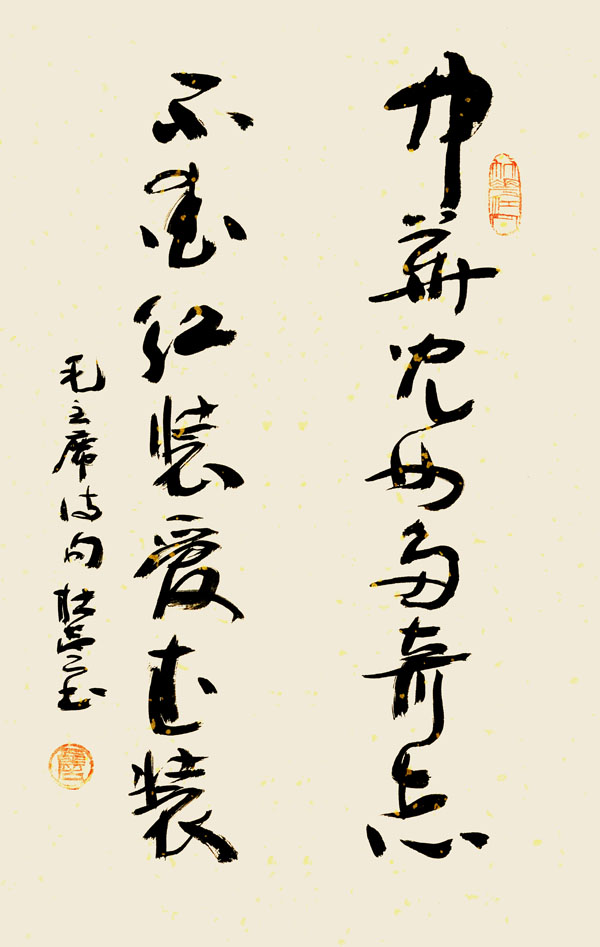 中華兒女多奇志
不爱红装爱武装
毛主席诗句 杜